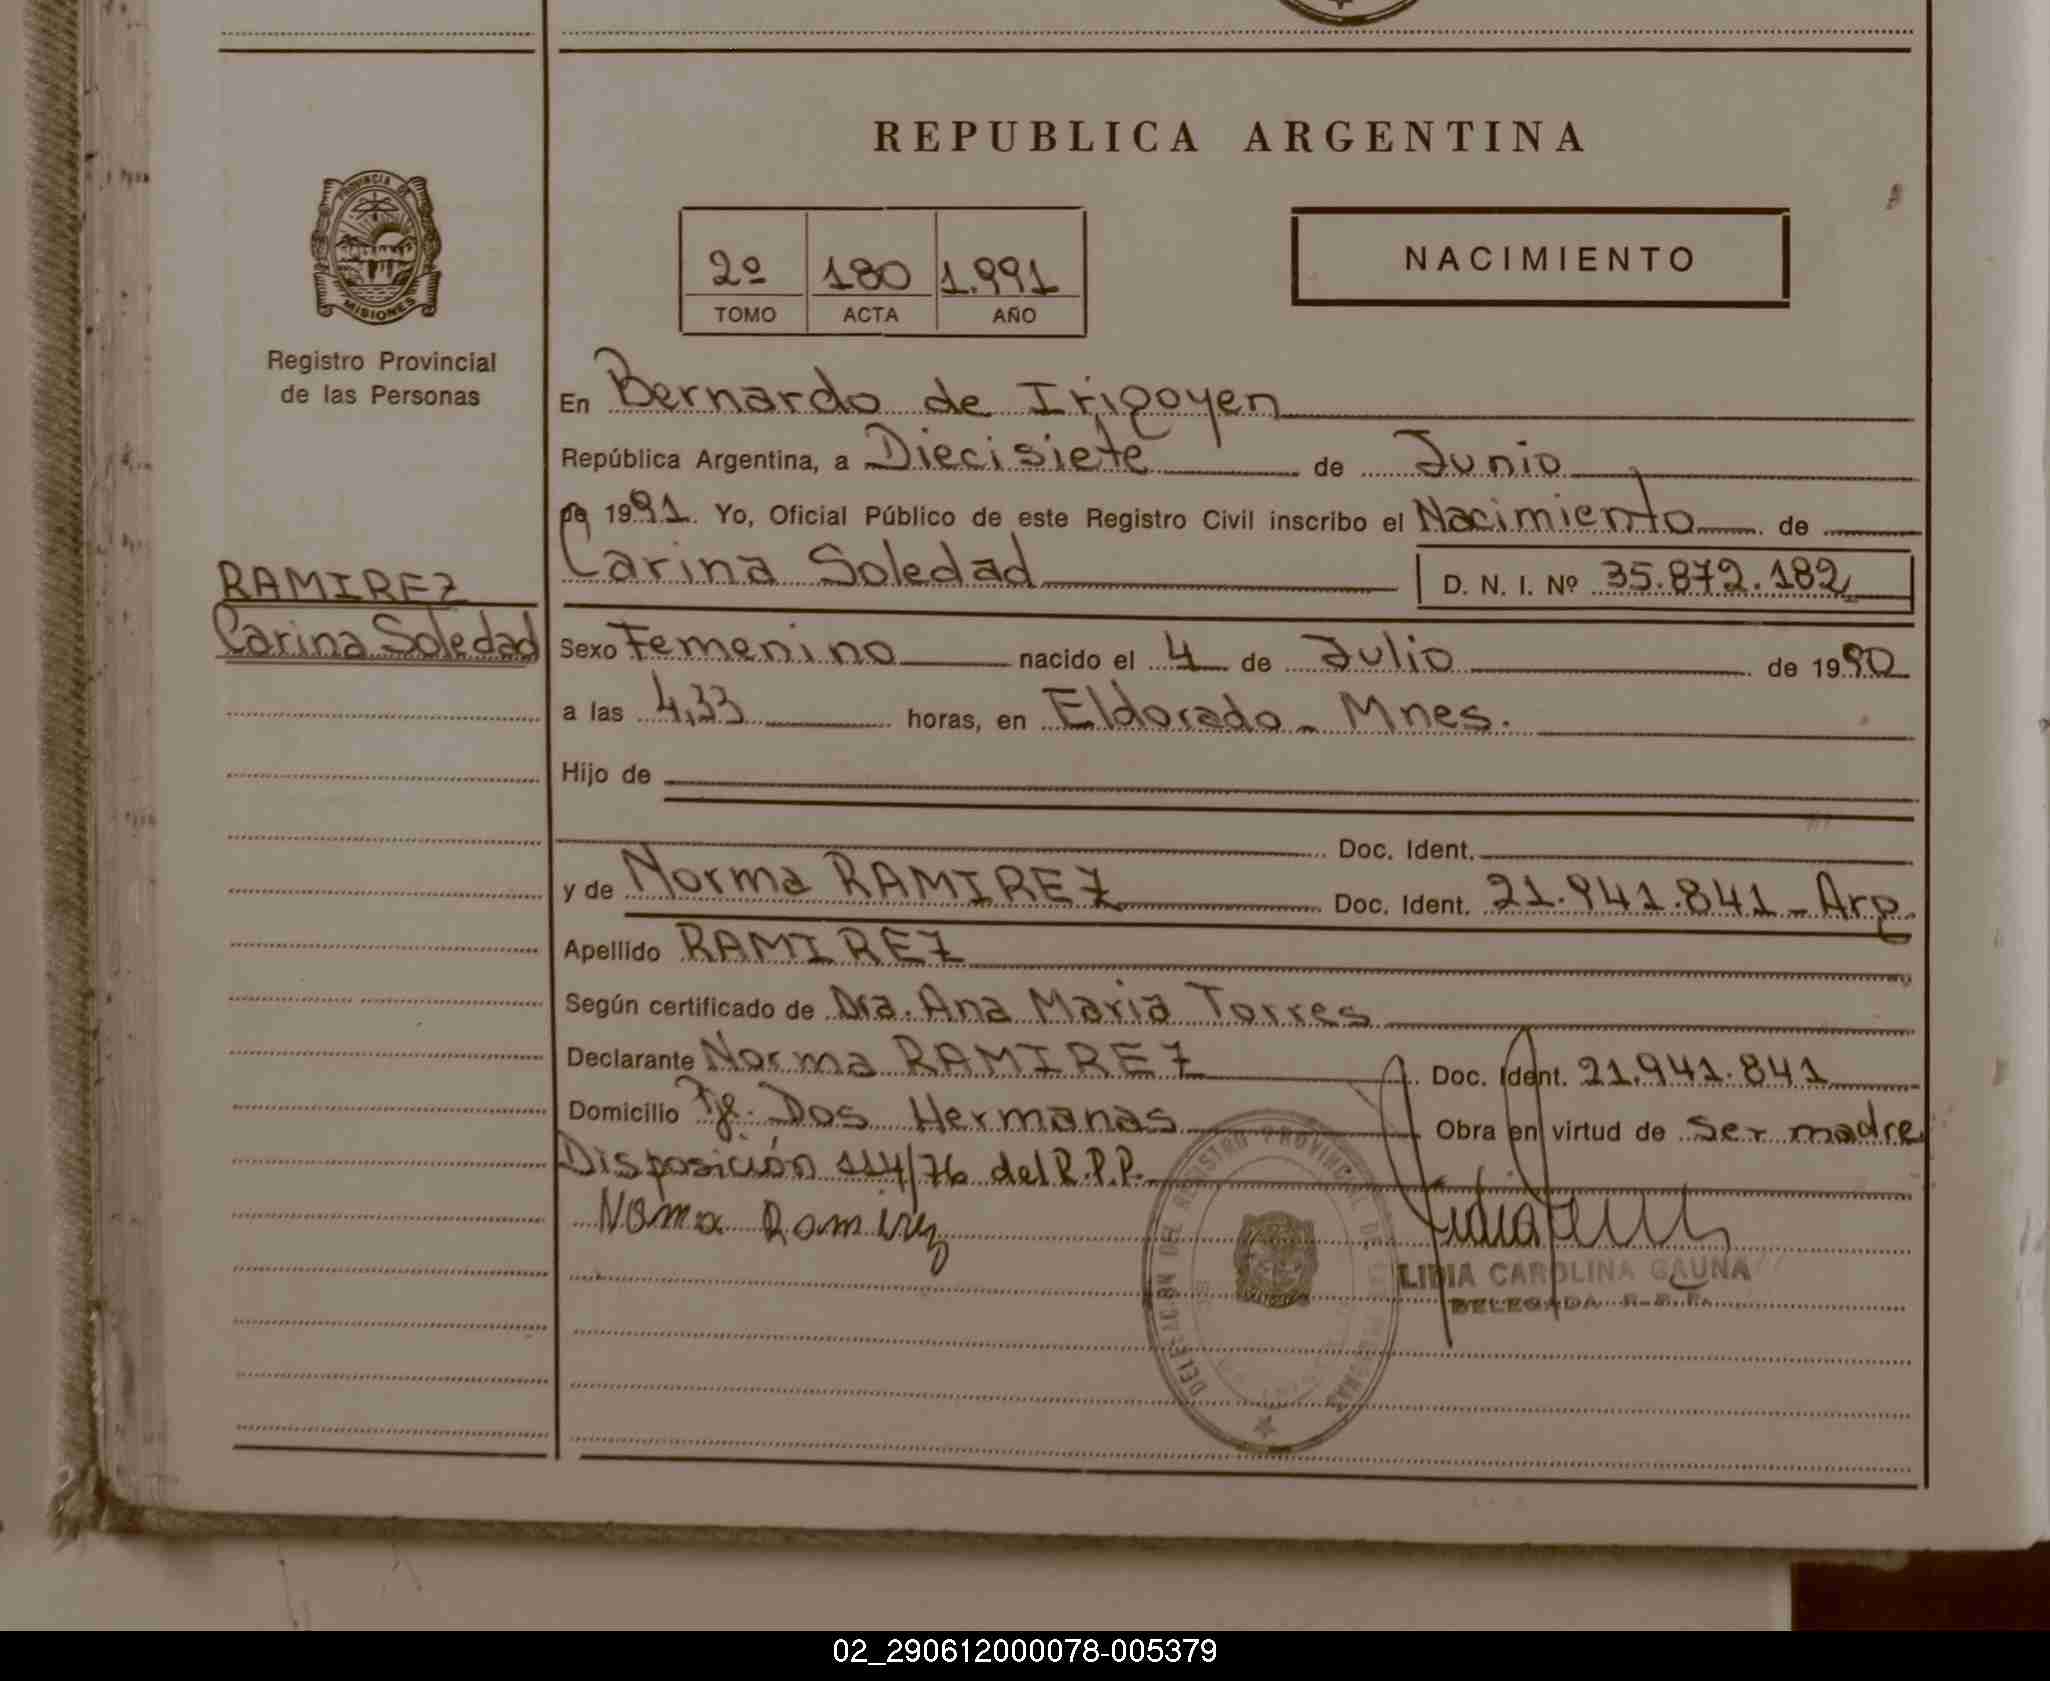 REPUBLICA ARGENTINA
PROVINCIA DE
MISIONES
Registro Provincial
de las Personas
2º 180 1.991
TOMO ACTA AÑO
NACIMIENTO
En Bernardo de Irigoyen
República Argentina, a Diecisiete de Junio
de 1991. Yo, Oficial Público de este Registro Civil inscribo el Nacimiento de
Carina Soledad D. N. I. Nº 35.872.182
RAMIREZ
Carina Soledad
Sexo Femenino nacido el 4 de Julio de 1990
a las 4,33 horas, en Eldorado - Mnes.
Hijo de
Doc. Ident.
y de Norma RAMIREZ Doc. Ident. 21.941.841 - Arg.
Apellido RAMIREZ
Según certificado de Dra. Ana Maria Torres
Declarante Norma RAMIREZ Doc. Ident. 21.941.841
Domicilio Pje. Dos Hermanas Obra en virtud de Ser madre
Disposición 114/76 del R.P.P.
Noma Ramirez
LIDIA CAROLINA GAUNA
DELEGADA R.P.P.
DELEGACION DEL REGISTRO PROVINCIAL DE LAS PERSONAS
02_290612000078-005379